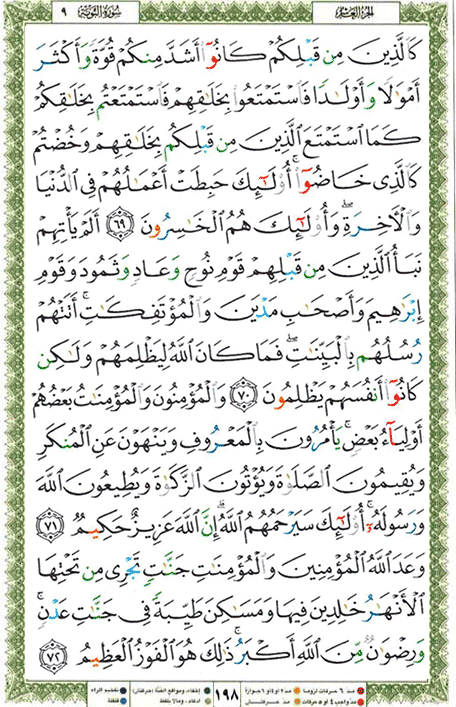 الجزء العاشر
سورة التوبة ٩
كَالَّذِينَ مِن قَبْلِكُمْ كَانُوٓا۟ أَشَدَّ مِنكُمْ قُوَّةً وَأَكْثَرَ
أَمْوَٰلًا وَأَوْلَـٰدًا فَٱسْتَمْتَعُوا۟ بِخَلَـٰقِهِمْ فَٱسْتَمْتَعْتُم بِخَلَـٰقِكُمْ
كَمَا ٱسْتَمْتَعَ ٱلَّذِينَ مِن قَبْلِكُم بِخَلَـٰقِهِمْ وَخُضْتُمْ
كَٱلَّذِى خَاضُوٓا۟ ۚ أُو۟لَـٰٓئِكَ حَبِطَتْ أَعْمَـٰلُهُمْ فِى ٱلدُّنْيَا
وَٱلْـَٔاخِرَةِ ۖ وَأُو۟لَـٰٓئِكَ هُمُ ٱلْخَـٰسِرُونَ ٦٩ أَلَمْ يَأْتِهِمْ
نَبَأُ ٱلَّذِينَ مِن قَبْلِهِمْ قَوْمِ نُوحٍ وَعَادٍ وَثَمُودَ وَقَوْمِ
إِبْرَٰهِيمَ وَأَصْحَـٰبِ مَدْيَنَ وَٱلْمُؤْتَفِكَـٰتِ ۚ أَتَتْهُمْ
رُسُلُهُم بِٱلْبَيِّنَـٰتِ ۖ فَمَا كَانَ ٱللَّهُ لِيَظْلِمَهُمْ وَلَـٰكِن
كَانُوٓا۟ أَنفُسَهُمْ يَظْلِمُونَ ٧٠ وَٱلْمُؤْمِنُونَ وَٱلْمُؤْمِنَـٰتُ بَعْضُهُمْ
أَوْلِيَآءُ بَعْضٍ ۚ يَأْمُرُونَ بِٱلْمَعْرُوفِ وَيَنْهَوْنَ عَنِ ٱلْمُنكَرِ
وَيُقِيمُونَ ٱلصَّلَوٰةَ وَيُؤْتُونَ ٱلزَّكَوٰةَ وَيُطِيعُونَ ٱللَّهَ
وَرَسُولَهُۥٓ ۚ أُو۟لَـٰٓئِكَ سَيَرْحَمُهُمُ ٱللَّهُ ۗ إِنَّ ٱللَّهَ عَزِيزٌ حَكِيمٌ ٧١
وَعَدَ ٱللَّهُ ٱلْمُؤْمِنِينَ وَٱلْمُؤْمِنَـٰتِ جَنَّـٰتٍ تَجْرِى مِن تَحْتِهَا
ٱلْأَنْهَـٰرُ خَـٰلِدِينَ فِيهَا وَمَسَـٰكِنَ طَيِّبَةً فِى جَنَّـٰتِ عَدْنٍ ۚ
وَرِضْوَٰنٌ مِّنَ ٱللَّهِ أَكْبَرُ ۚ ذَٰلِكَ هُوَ ٱلْفَوْزُ ٱلْعَظِيمُ ٧٢
مد ٦ حركات لزوماً
مد ٢ أو ٤ أو ٦ جوازاً
مد واجب ٤ أو ٥ حركات
مد حركتان
١٩٨
إخفاء، ومواقع الغنة (حركتان)
إدغام، وما لا يلفظ
تفخيم الراء
قلقلة